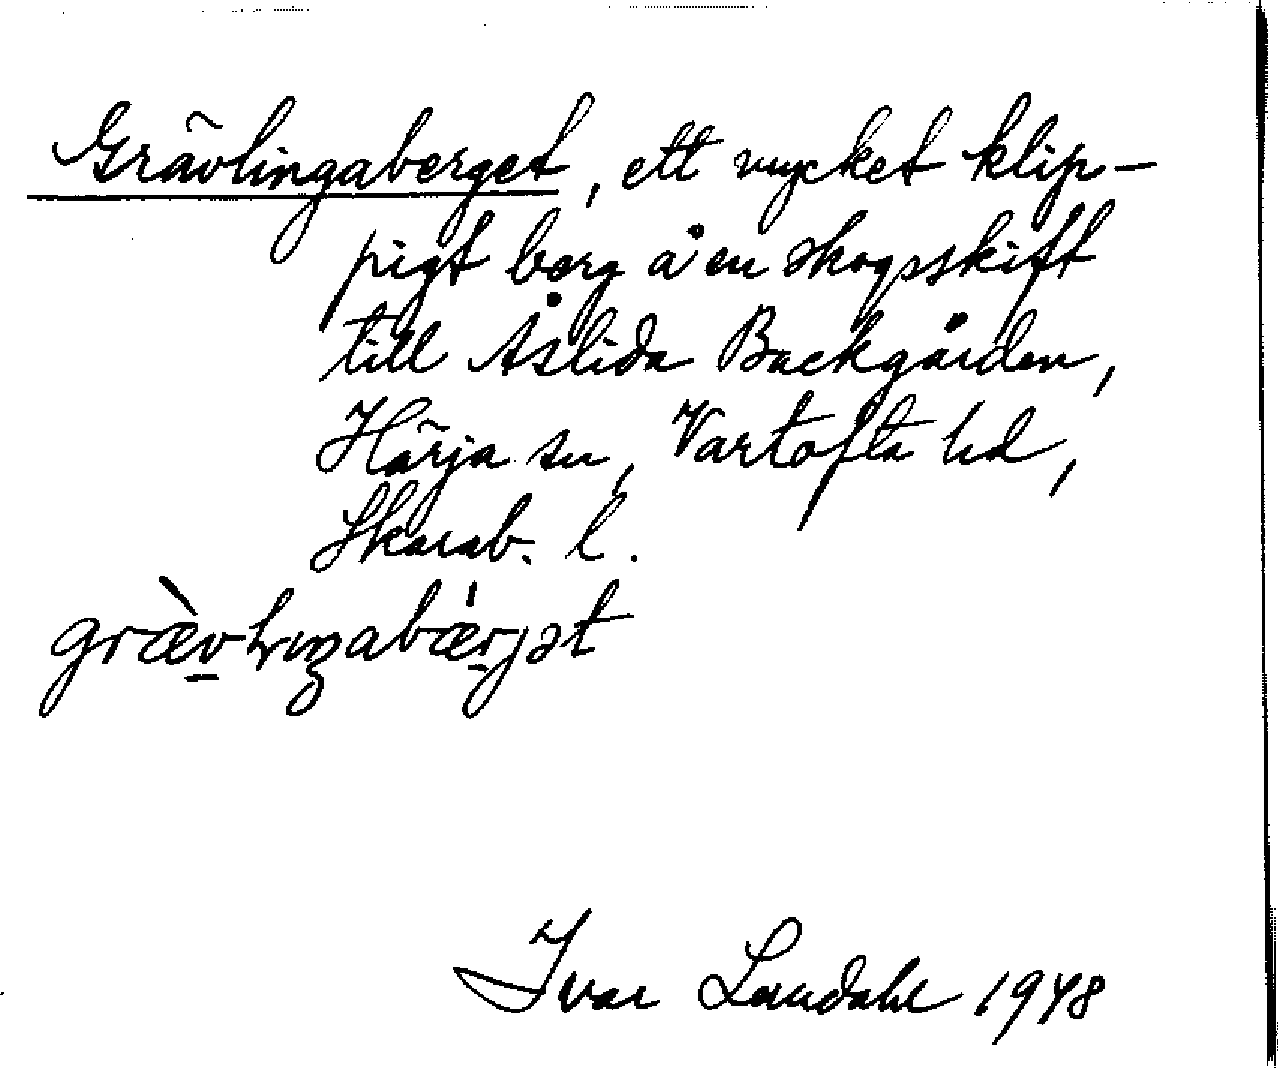 Grävlingaberget, ett mycket klip-
pigt berg å en skogsskift
till Åslida Backgården,
Härja sn, Vartofta hd,
Skarab. l.
græ̀vlɩŋabæ̍rjət
Ivar Lundahl 1948